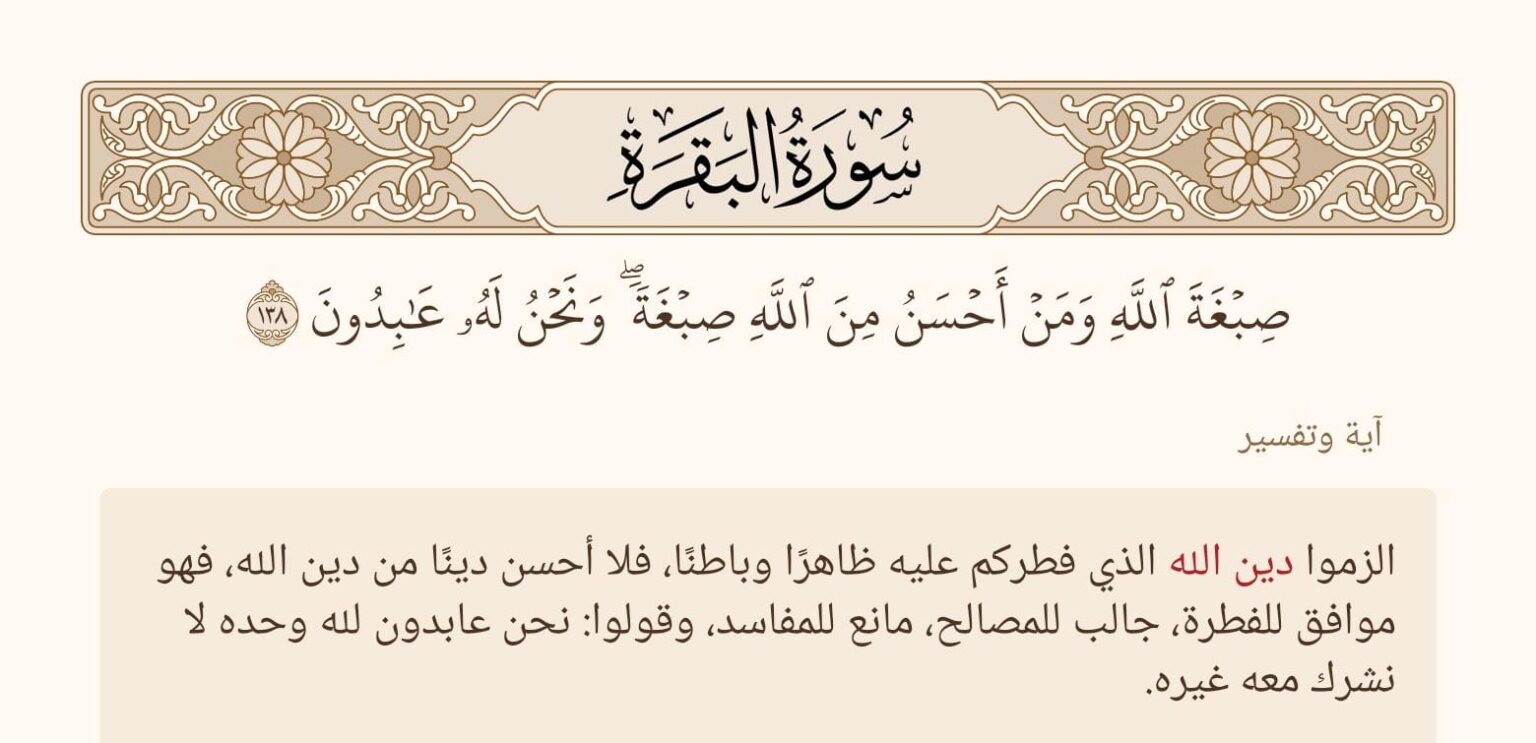 سُورَةُ البَقَرَةِ
صِبۡغَةَ ٱللَّهِ وَمَنۡ أَحۡسَنُ مِنَ ٱللَّهِ صِبۡغَةٗۖ وَنَحۡنُ لَهُۥ عَٰبِدُونَ ١٣٨
آية وتفسير
الزموا دين الله الذي فطركم عليه ظاهرًا وباطنًا، فلا أحسن دينًا من دين الله، فهو
موافق للفطرة، جالب للمصالح، مانع للمفاسد، وقولوا: نحن عابدون لله وحده لا
نشرك معه غيره.